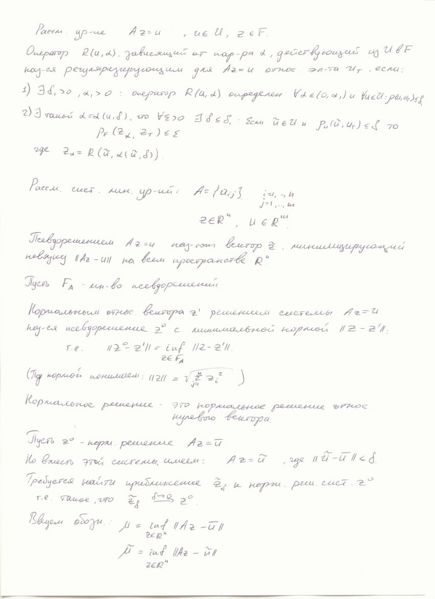 Рассм. ур-ие Az = u , u∈U, z∈F.
Оператор R(u,α), зависящий от пар-ра α, действующий из U в F
наз-ся регуляризирующим для Az=u относ. эл-та u_T, если:
1) ∃ δ₁>0, α₁>0 : оператор R(u,α) определен ∀α∈(0,α₁) и ∀u∈U: ρ(u,u_T)≤δ₁
2) ∃ такой α=α(u,δ), что ∀ε>0 ∃ δ≤δ₁: Если ũ∈U и ρ_U(ũ,u_T)≤δ то
ρ_F(z_α, z_T)≤ε
где z_α = R(ũ, α(ũ,δ)).
Рассм. сист. лин. ур-ий: A={a_ij} i=1,..,n
j=1,..,m
z∈Rⁿ, u∈Rᵐ.
Псевдорешением Az=u наз-ют вектор z, минимизирующий
невязку ||Az-u|| на всем пространстве Rⁿ
Пусть F_A - мн-во псевдорешений
Нормальным относ. вектора z' решением системы Az=u
наз-ся псевдорешение z⁰ с минимальной нормой ||z-z'||.
т.е. ||z⁰-z'|| = inf ||z-z'||
z∈F_A
(Под нормой понимаем: ||z|| = √(Σ z_i²))
Нормальное решение - это нормальное решение относ
нулевого вектора
Пусть z⁰ - норм. решение Az=ū
Но вместо этой системы имеем: Az=ũ, где ||ũ-ū||≤δ
Требуется найти приближение z̃_δ к норм. реш. сист. z⁰
т.е такое, что z̃_δ δ→0 → z⁰
Введем обозн: μ = inf ||Az-ū||
z∈Rⁿ
μ̃ = inf ||Az-ũ||
z∈Rⁿ